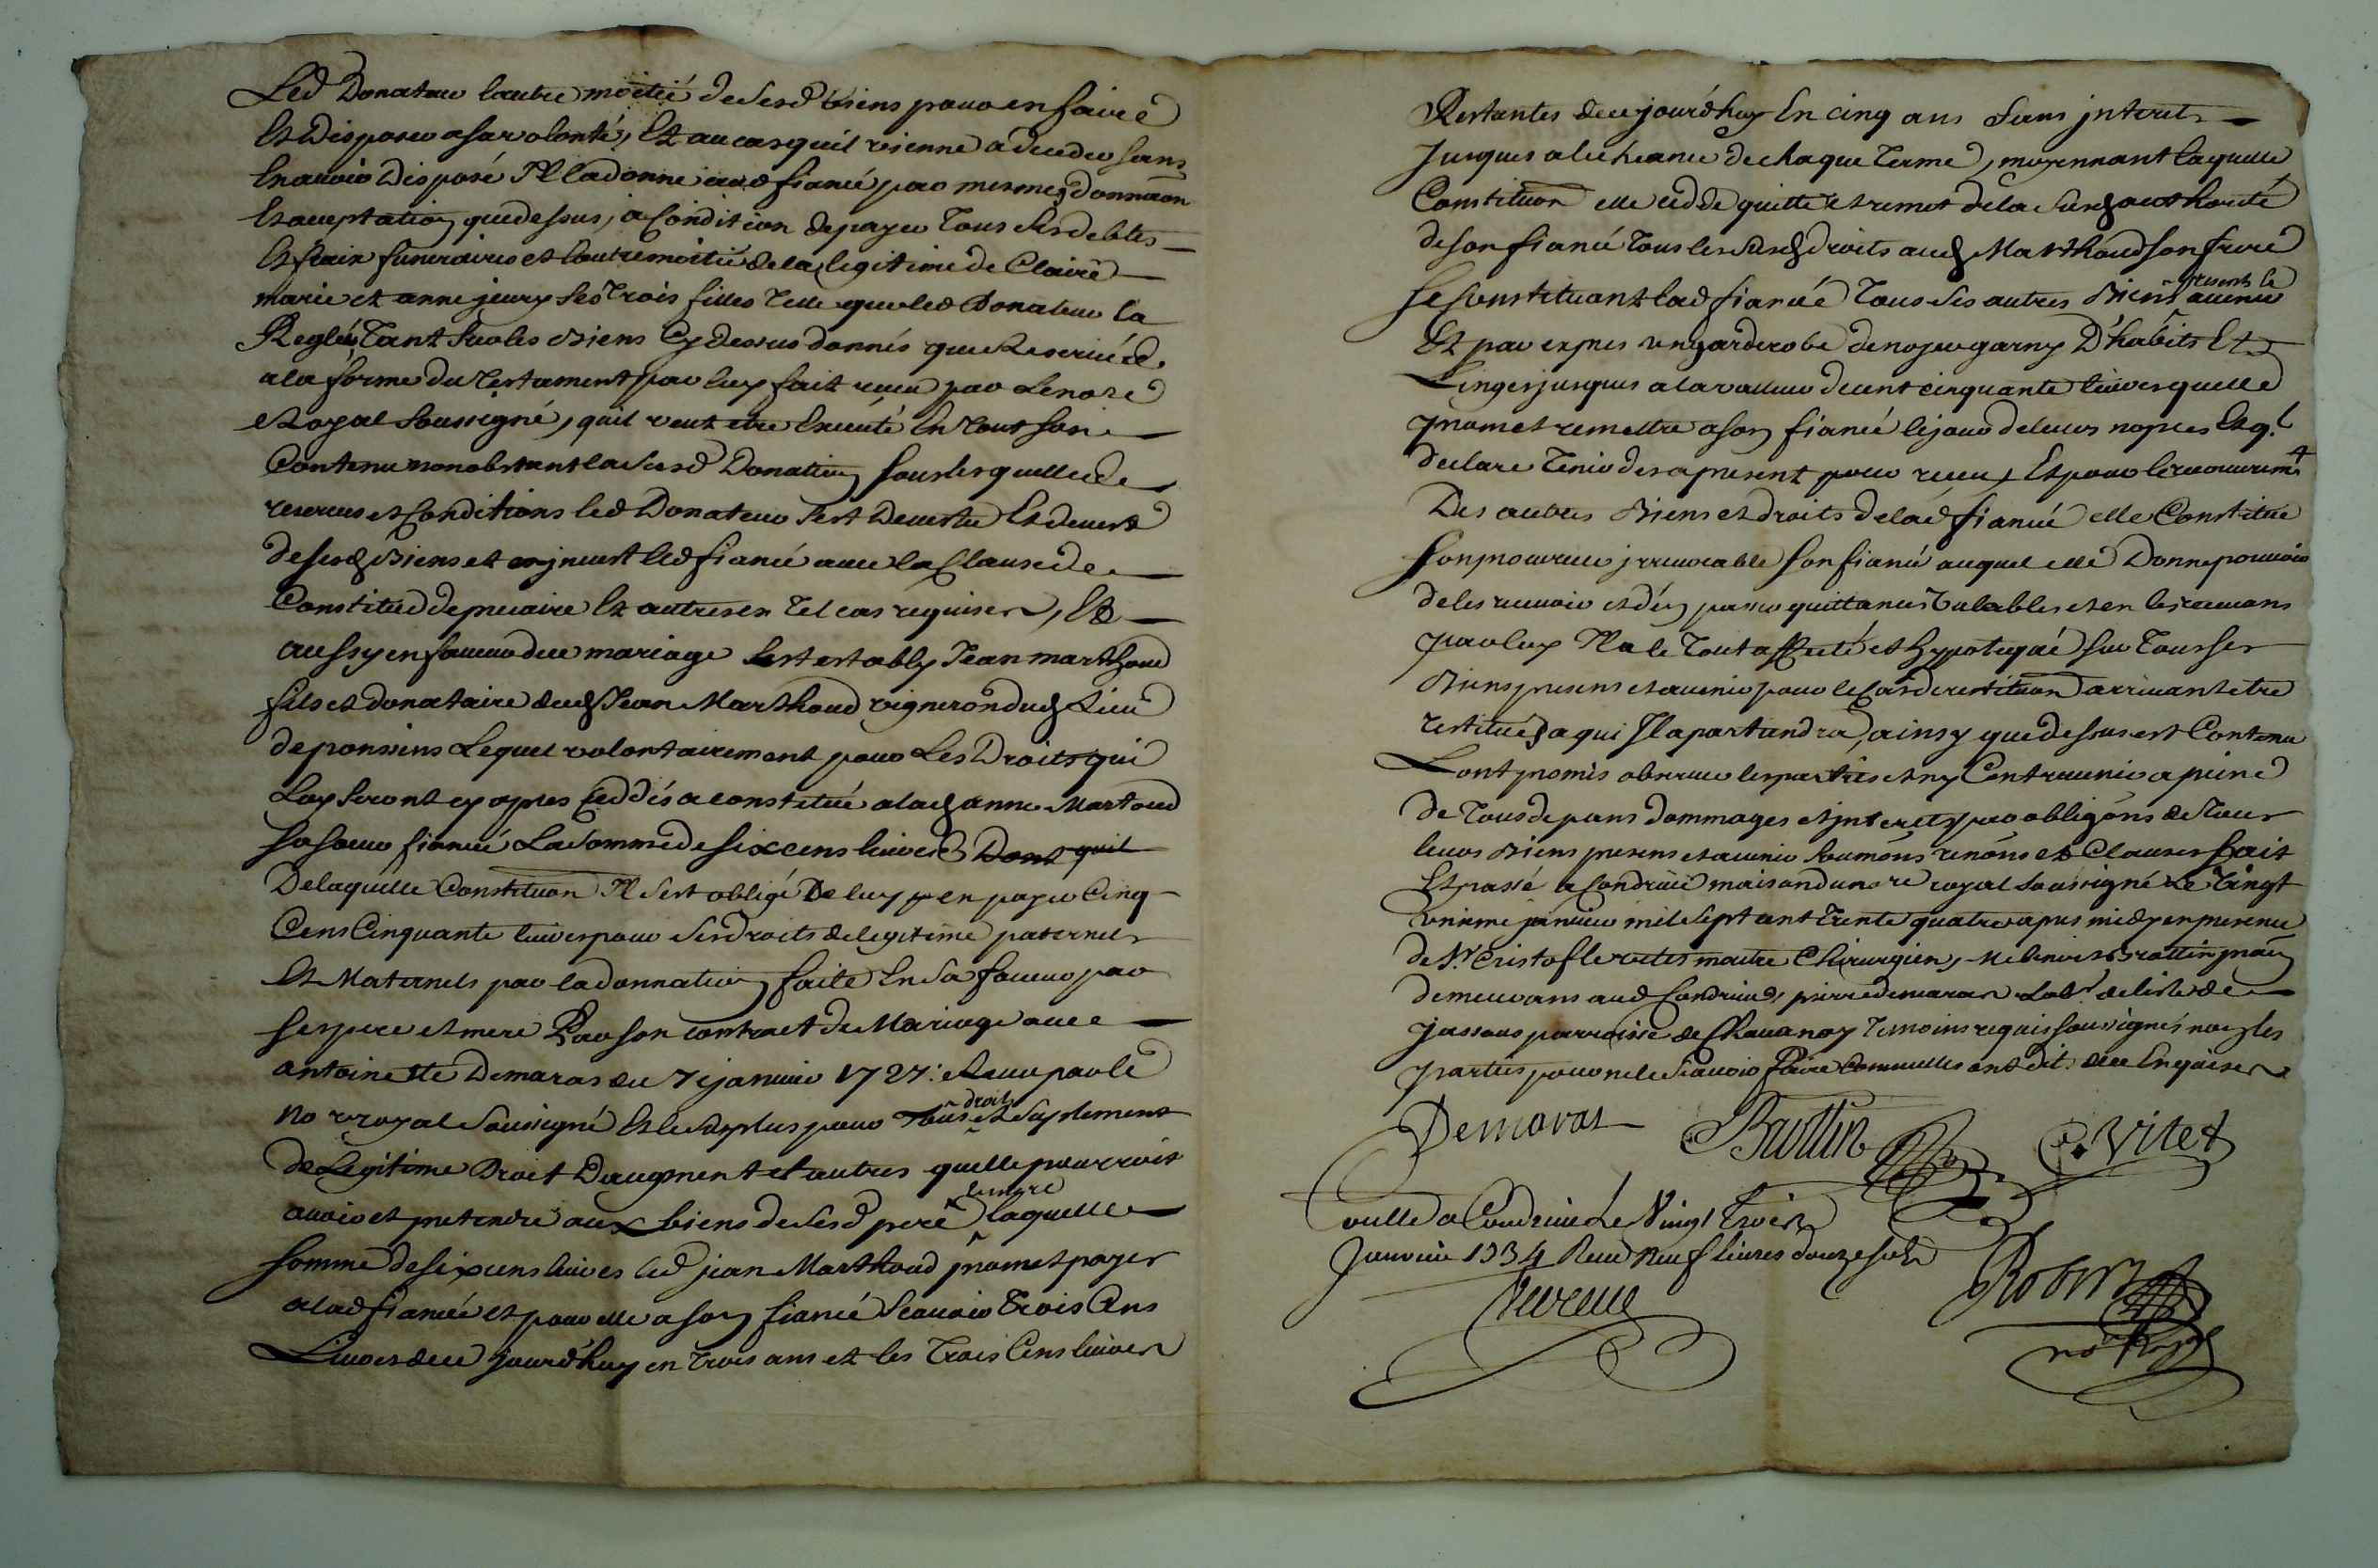 Led Donateur lautre moitié de sesd biens pour en faire
Et disposer a sa volonté, Et au cas quil vienne a deceder sans
En avoir disposé Il la donne aud fiancé par mesmes donnaon
Et acceptation que dessus, a Condition de payer tous ses debtes
Et frais funeraires et lautre moitié de la legitime de Claire
marie et anne jeury ses trois filles telle que led Donateur la
Reglée tant sur les Biens Cy dessus donnés que Reservés
a la forme du testament par luy fait receu par Le nore
Royal soussigné, quil veut etre Executé En tout son
Contenu nonobstant la susd Donation sous lesquelles
reserves et Conditions led Donateur sest Devestu Et devest
de sesd Biens et en jnvest led fiancé avec la Clause de
Constitut de precaire Et autres en tel cas requises, Et
aussy en faveur dud mariage sest estably Jean marthoud
fils et donataire dud Jean Marthoud vigneron dud Lieu
de ponsins Lequel volontairement pour Les Droits qui
Luy seront cy apres Ceddés a constitué a lad anne Martoud
sa soeur fiancée La somme de six cens livres Dont quil
De laquelle Constituon Il sest obligé De luy en payer Cinq
Cens Cinquante livres pour ses droits de legitime paternels
Et Maternels par la donnation faite En sa faveur par
ses pere et mere Par son contract de Mariage avec
antoinette Demaras du 7e janvier 1727: Receu par le
no re royal soussigné Et le surplus pour tous droits et suplement
de Legitime Droit Daugment et autres quelle pourroit
avoir et pretendre aux biens de sesd pere et mere laquelle
somme de six cens livres led jean Marthoud promet payer
a lad fiancée et pour elle a son fiancé Scavoir trois Cens
Livres de ce jourdhuy en trois ans et les trois Cens livres
Restantes de ce jourdhuy En cinq ans sans jnterets
Jusques a lecheance de chaque terme, moyennant laquelle
Constituon elle cedde quitte et remet de la susd authorité
de son fiancé tous les susd droits aud Marthoud son frere
se Constituant lad fiancée tous ses autres Biens presents et avenir
Et par expres un garderobe de noyer garny Dhabits Et
Linges jusques a la valleur de cent cinquante livres quelle
promet remettre a son fiancé le jour de leurs nopces Et q.l
declare tenir des a present pour receu, Et pour le recouvremt
Des autres Biens et droits de lad fiancée elle Constitue
son procureur jrrevocable son fiancé auquel elle Donne pouvoir
de les recevoir et den passer quittances valables et en les recevans
par luy Il a le tout affecté et hypotequé sur tous ses
Biens presens et avenir pour le cas de restituon arrivant etre
restitué a qui Il apartiendra, ainsy que dessus est Contenu
Lont promis observer les parties et ny Contrevenir a peine
de tous depans dommages et jnterets par obligons de tous
leurs Biens presens et avenir soumons renons et Clauses fait
Et passé a Condrieu maison du nore royal soussigné Le vingt
unieme janvier mil sept cent trente quatre apres midy en presence
de Sr Cristofle vitet maitre Chirurgien, Me benoit Brottin praen
demeurans aud Condrieu, pierre demaras Labr de liste de
jassoux parroisse de Chavanay temoins requis soussignés non les
parties pour ne le Scavoir faire comme elles ont dit de ce Enquises
Demaras Brottin C. Vitet
Conllé a Condrieu Le Vingt trois
Janvier 1734 Receu neuf livres douze sols
Robin
no Royal